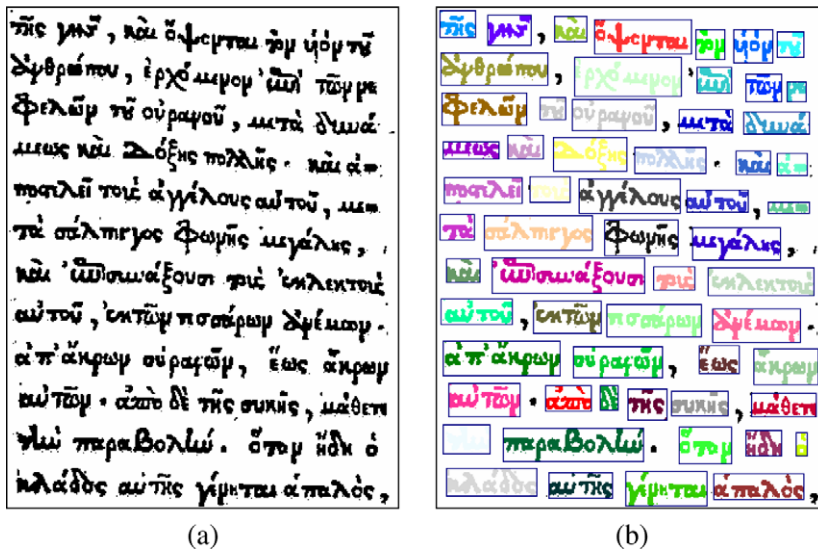 τῆς γῆς, καὶ ὄψονται τὸν υἱὸν τοῦ
ἀνθρώπου, ἐρχόμενον ἐπὶ τῶν νε
φελῶν τοῦ οὐρανοῦ, μετὰ δυνά
μεως καὶ δόξης πολλῆς. καὶ ἀ=
ποστελεῖ τοὺς ἀγγέλους αὐτοῦ, με=
τὰ σάλπιγγος φωνῆς μεγάλης,
καὶ ἐπισυνάξουσι τοὺς ἐκλεκτοὺς
αὐτοῦ, ἐκ τῶν τεσσάρων ἀνέμων.
ἀπ' ἄκρων οὐρανῶν, ἕως ἄκρων
αὐτῶν. ἀπὸ δὲ τῆς συκῆς, μάθετε
τὴν παραβολήν. ὅταν ἤδη ὁ
κλάδος αὐτῆς γένηται ἁπαλὸς,
(a)
τῆς γῆς, καὶ ὄψονται τὸν υἱὸν τοῦ
ἀνθρώπου, ἐρχόμενον ἐπὶ τῶν νε
φελῶν τοῦ οὐρανοῦ, μετὰ δυνά
μεως καὶ δόξης πολλῆς. καὶ ἀ=
ποστελεῖ τοὺς ἀγγέλους αὐτοῦ, με=
τὰ σάλπιγγος φωνῆς μεγάλης,
καὶ ἐπισυνάξουσι τοὺς ἐκλεκτοὺς
αὐτοῦ, ἐκ τῶν τεσσάρων ἀνέμων.
ἀπ' ἄκρων οὐρανῶν, ἕως ἄκρων
αὐτῶν. ἀπὸ δὲ τῆς συκῆς, μάθετε
τὴν παραβολήν. ὅταν ἤδη ὁ
κλάδος αὐτῆς γένηται ἁπαλὸς,
(b)